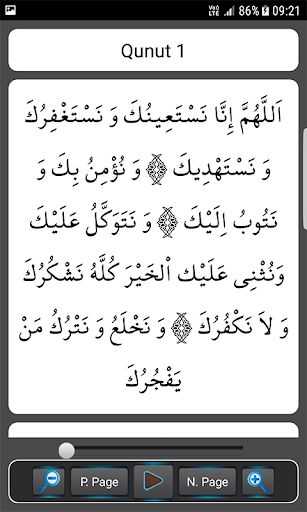 86% 09:21
Qunut 1
اَللَّهُمَّ إِنَّا نَسْتَعِينُكَ وَ نَسْتَغْفِرُكَ
وَ نَسْتَهْدِيكَ ۞ وَ نُؤْمِنُ بِكَ وَ
نَتُوبُ اِلَيْكَ ۞ وَ نَتَوَكَّلُ عَلَيْكَ
وَنُثْنِى عَلَيْك الْخَيْرَ كُلَّهُ نَشْكُرُكَ
وَ لاَ نَكْفُرُكَ ۞ وَ نَخْلَعُ وَ نَتْرُكُ مَنْ
يَفْجُرُكَ
P. Page N. Page